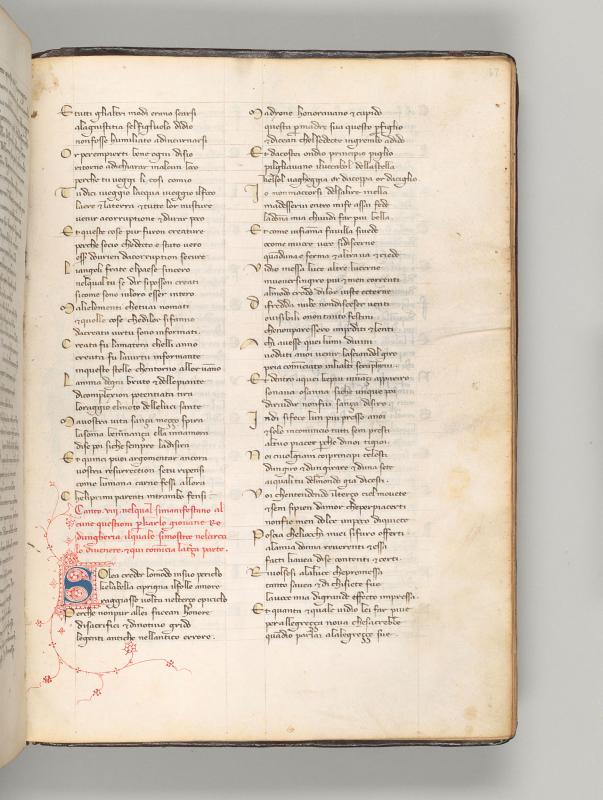 E tutti glialtri modi erano scarsi
alagiustitia selfigliuolo didio
nonfosse humiliato adincarnarsi
Or perempierti bene ogni disio
ritorno adichiarar inalcun loco
perche tu veggi li, cosi comio
Tu dici iveggio lacqua iveggio ilfoco
laere & laterra & tutte lor misture
venir acorruptione & durar poco
Et queste cose pur furon creature
perche secio chedecto e stato vero
esser dovrien dacorruption secure
Liangeli frate elpaese sincero
nelqual tu se dir siposson creati
sicome sono inloro esser intero
Malielementi chetuai nomati
& quelle cose chedilor sifanno
dacreata virtu sono informati.
Creata fu lamatera chelli anno
creata fu lavirtu informante
inqueste stelle chentorno allor vanno
Lanima dogni bruto & dellepiante
dicomplexion potentiata tira
loraggio elmoto delleluci sante
Mavostra vita sanza mezzo spira
lasoma beninanza ella innamora
dise poi siche sempre ladisira
Et quinci puoi argomentar ancora
vostra resurrection setu ripensi
come lumana carne fessi allora
Cheliprimi parenti intrambo fensi.
Canto .viii. nelqual simanifestano al
cune questioni per karlo giovane Re
dungheria, ilquale simostroe nelcerco
lo divenere, & qui comincia laterza parte.
Solea creder lomondo insuo periclo
chelabella ciprigna ilfolle amore
raggiasse volta nelterzo epiciclo
Perche nonpur allei facean honore
disacrifici & divotivo grido
legenti antiche nellantico errore.
Madione honoravano & cupido
questa permadre sua questo perfiglio
& dicean chelsedecte ingrembo adido
Et dacostei ondio principio piglio
pigliavano ilvocabol dellastella
chelsol vagheggia or dacoppa or daciglio
Io nonmaccorsi delsalire inella
madesservi entro mife assai fede
ladonna mia chevidi far piu bella.
Et come infiamma favilla sivede
& come invoce voce sidiscerne
quanduna e ferma & altra va & riede
Vidio inessa luce altre lucerne
muoversingiro piu & men correnti
almodo credo dilor viste ecterne
Difredda nube nondisceser venti
ovisibili onon tanto festini
chenonparessero impediti & lenti
Achi avesse quei lumi divini
veduti anoi venir lasciandol giro
pria cominciato inhalti seraphini.
Et dentro aquei chepiu innanzi appariro
sonava osanna siche unque poi
dariudir nonfui sanza disiro.
Indi sifece lun piu presso anoi
& solo incomincio tutti sem presti
altuo piacer perche dinoi tigioi.
Noi civolgiam coiprincipi celesti
dungiro & dungirare & duna sete
aiquali tu delmondo gia dicesti.
Voi chentendendo ilterzo ciel movete
& sem sipien damor cheperpiacerti
nonfie men dolce unpoco diquiete
Poscia chelioccchi miei sifuro offerti
alamia donna reverenti & essa
facti liavea dise contenti & certi.
Rivolsesi alaluce chepromessa
tanto savea & di chisiete fue
lavoce mia digrande affecto impressa.
Et quanta & quale vidio lei far piue
perallegrezza nova chesacrebbe
quandio parlai alalegrezze sue.